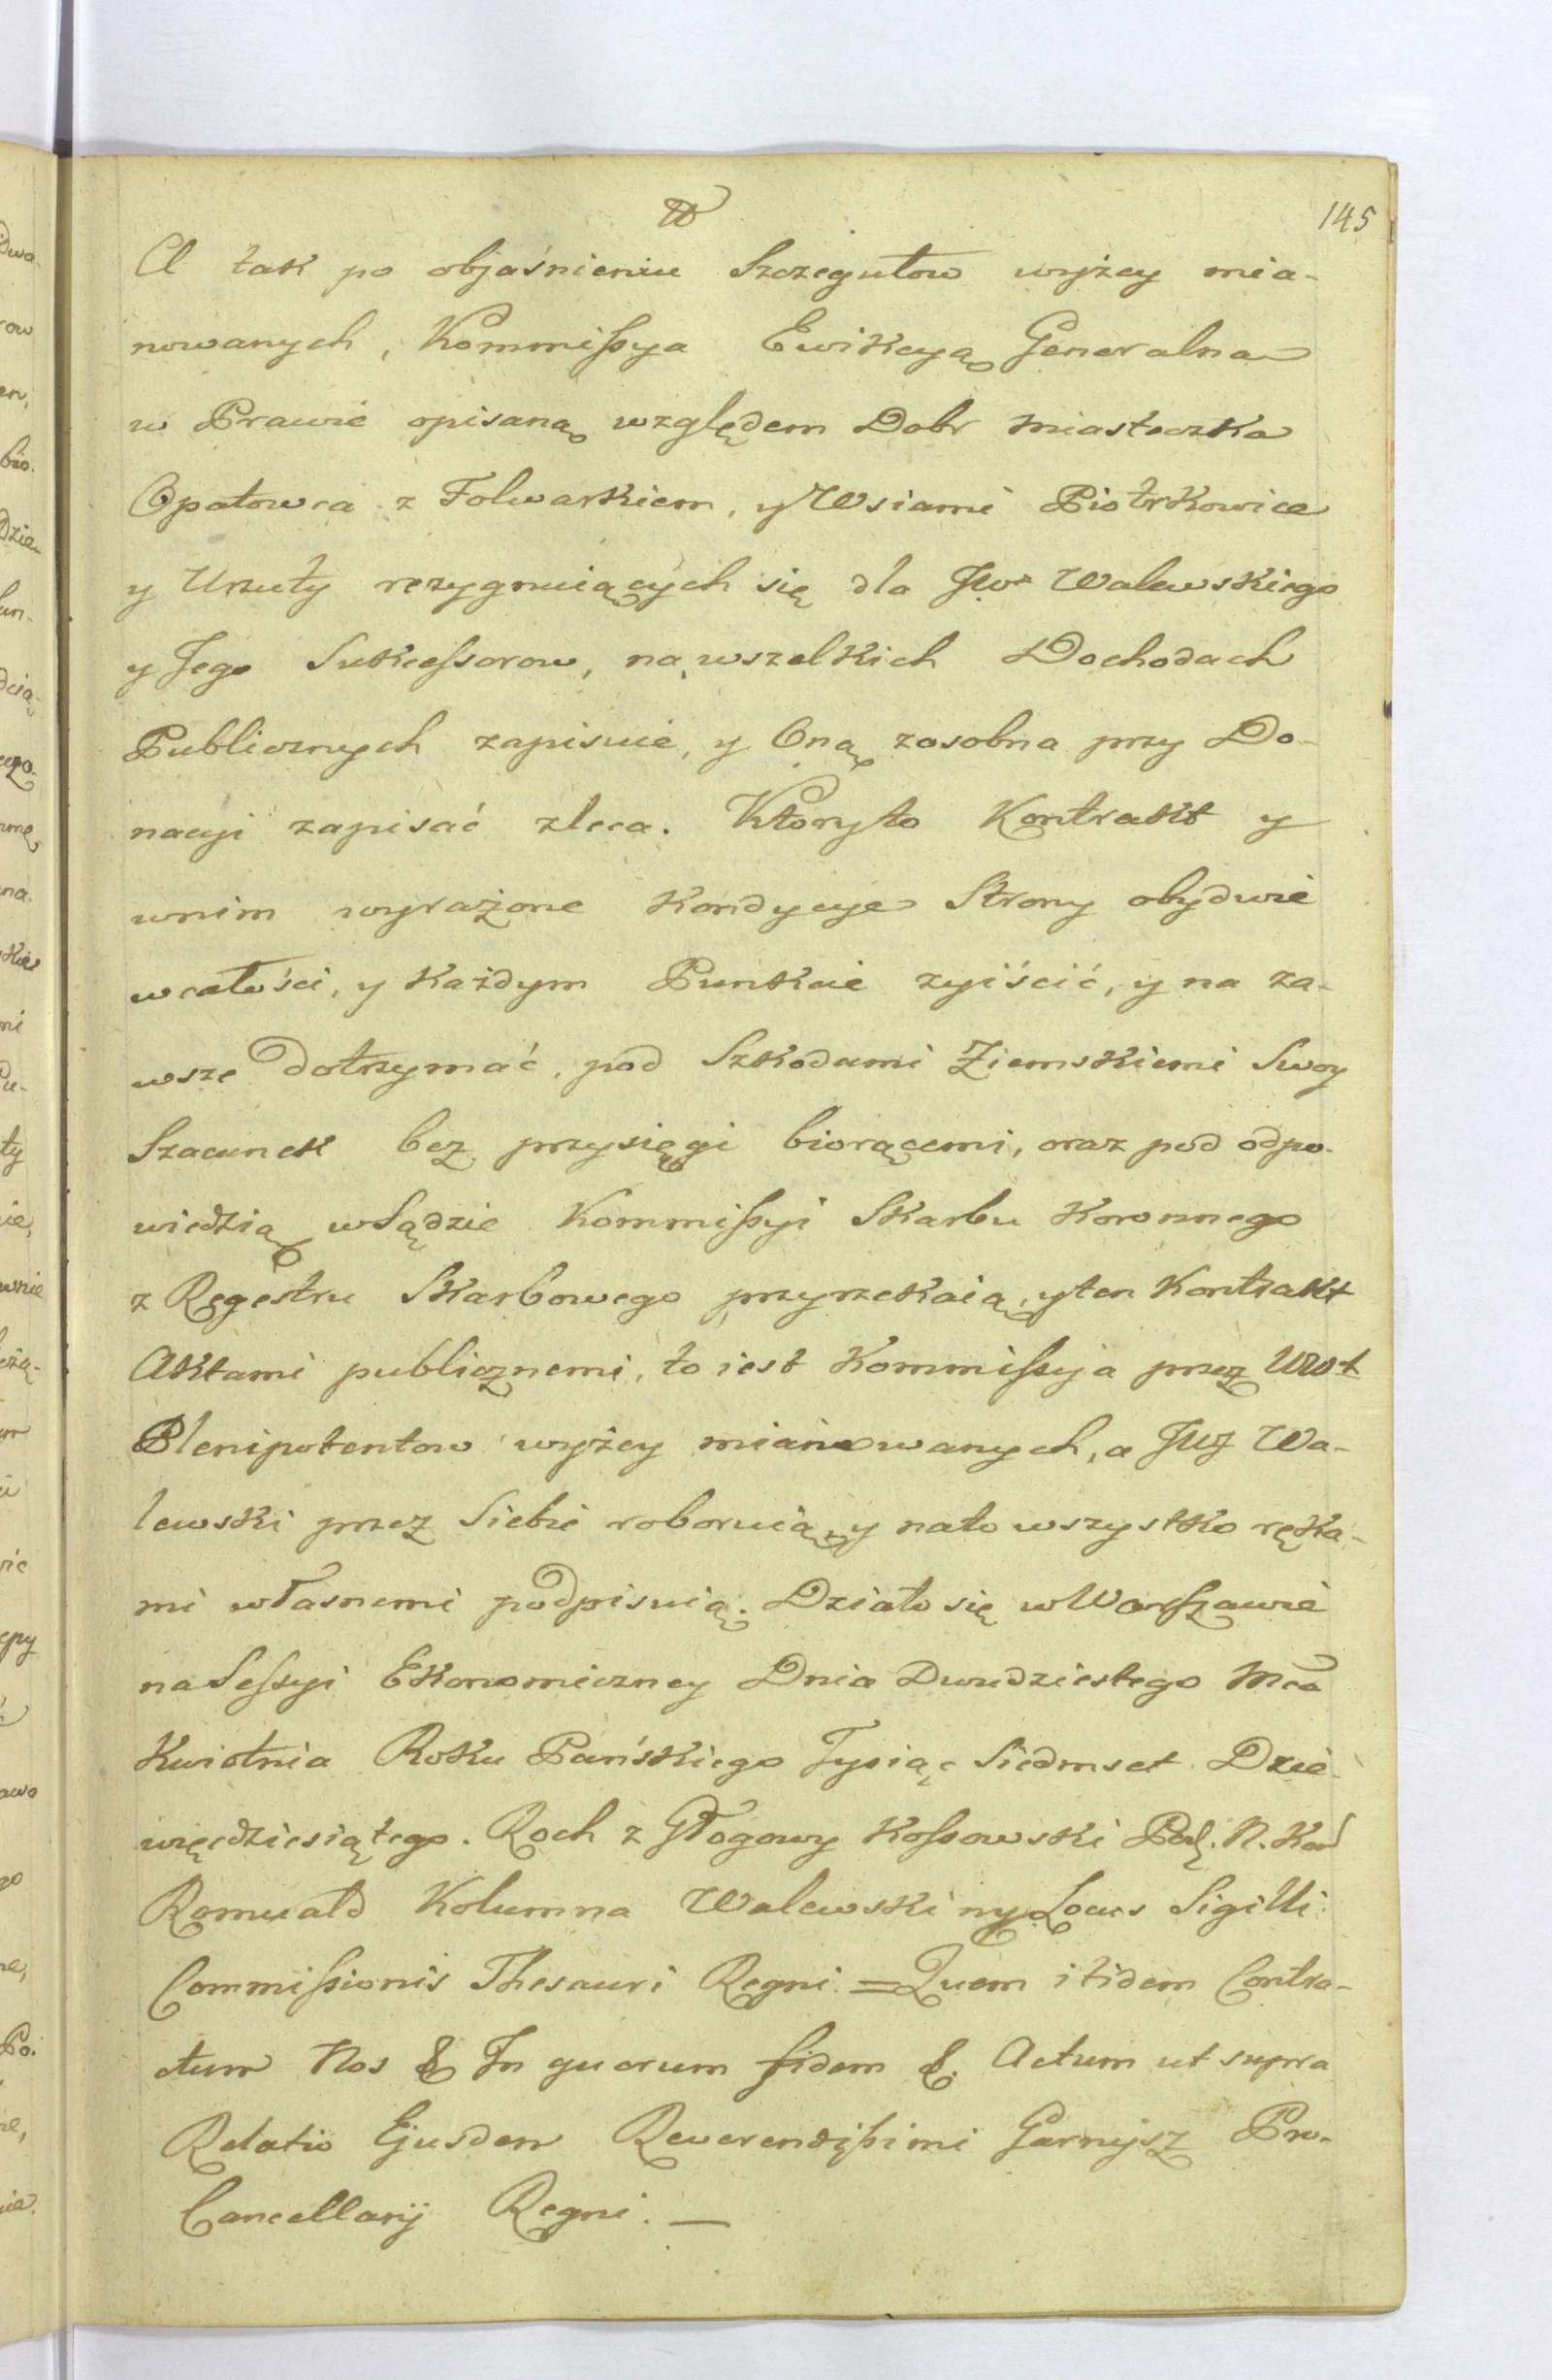 145
A tak po objaśnieniu Szczegułow wyżey mia-
nowanych, Kommißya Ewikcyą Generalną
w Prawie opisaną względem Dobr Miasteczka
Opatowca z Folwarkiem, y Wsiami Piotrkowice
y Urzuty rezygnuiących się dla JWo Walewskiego
y Jego Sukceßorow, na wszelkich Dochodach
Publicznych zapisuie, y Oną zosobna przy Do-
nacyi zapisać zleca. Ktory to Kontrakt y
wnim wyrażone Kondycye Strony obydwie
wcałości, y każdym Punkcie zyiścić, y na za-
wsze dotrzymać, pod Szkodami Ziemskiemi Swoy
Szacunek bez przysięgi biorącemi, oraz pod odpo-
wiedzią w Sądzie Kommißyi Skarbu Koronnego
z Regestru Skarbowego przyrzekaią, y ten Kontrakt
Aktami publicznemi, to iest Kommißyja przez Uro+
Plenipotentow wyżey mianowanych, a JW Wa-
lewski przez Siebie roboruią, y nato wszystko ręka-
mi własnemi podpisuią. Działo się w Warszawie
na Seßyi Ekonomiczney Dnia Dwudziestego Mca
Kwietnia Roku Pańskiego Tysiąc Siedmset Dzie-
więcdziesiątego. Roch z Głogowy Koßowski Pod. N. Kor
Romuald Kolumna Walewski mp Locus Sigilli
Commißionis Thesauri Regni. = Quem itidem Contra-
ctum Nos & In quorum fidem &. Actum ut supra
Relatio Ejusdem Reverendißimi Garnysz Pro-
Cancellarij Regni. —